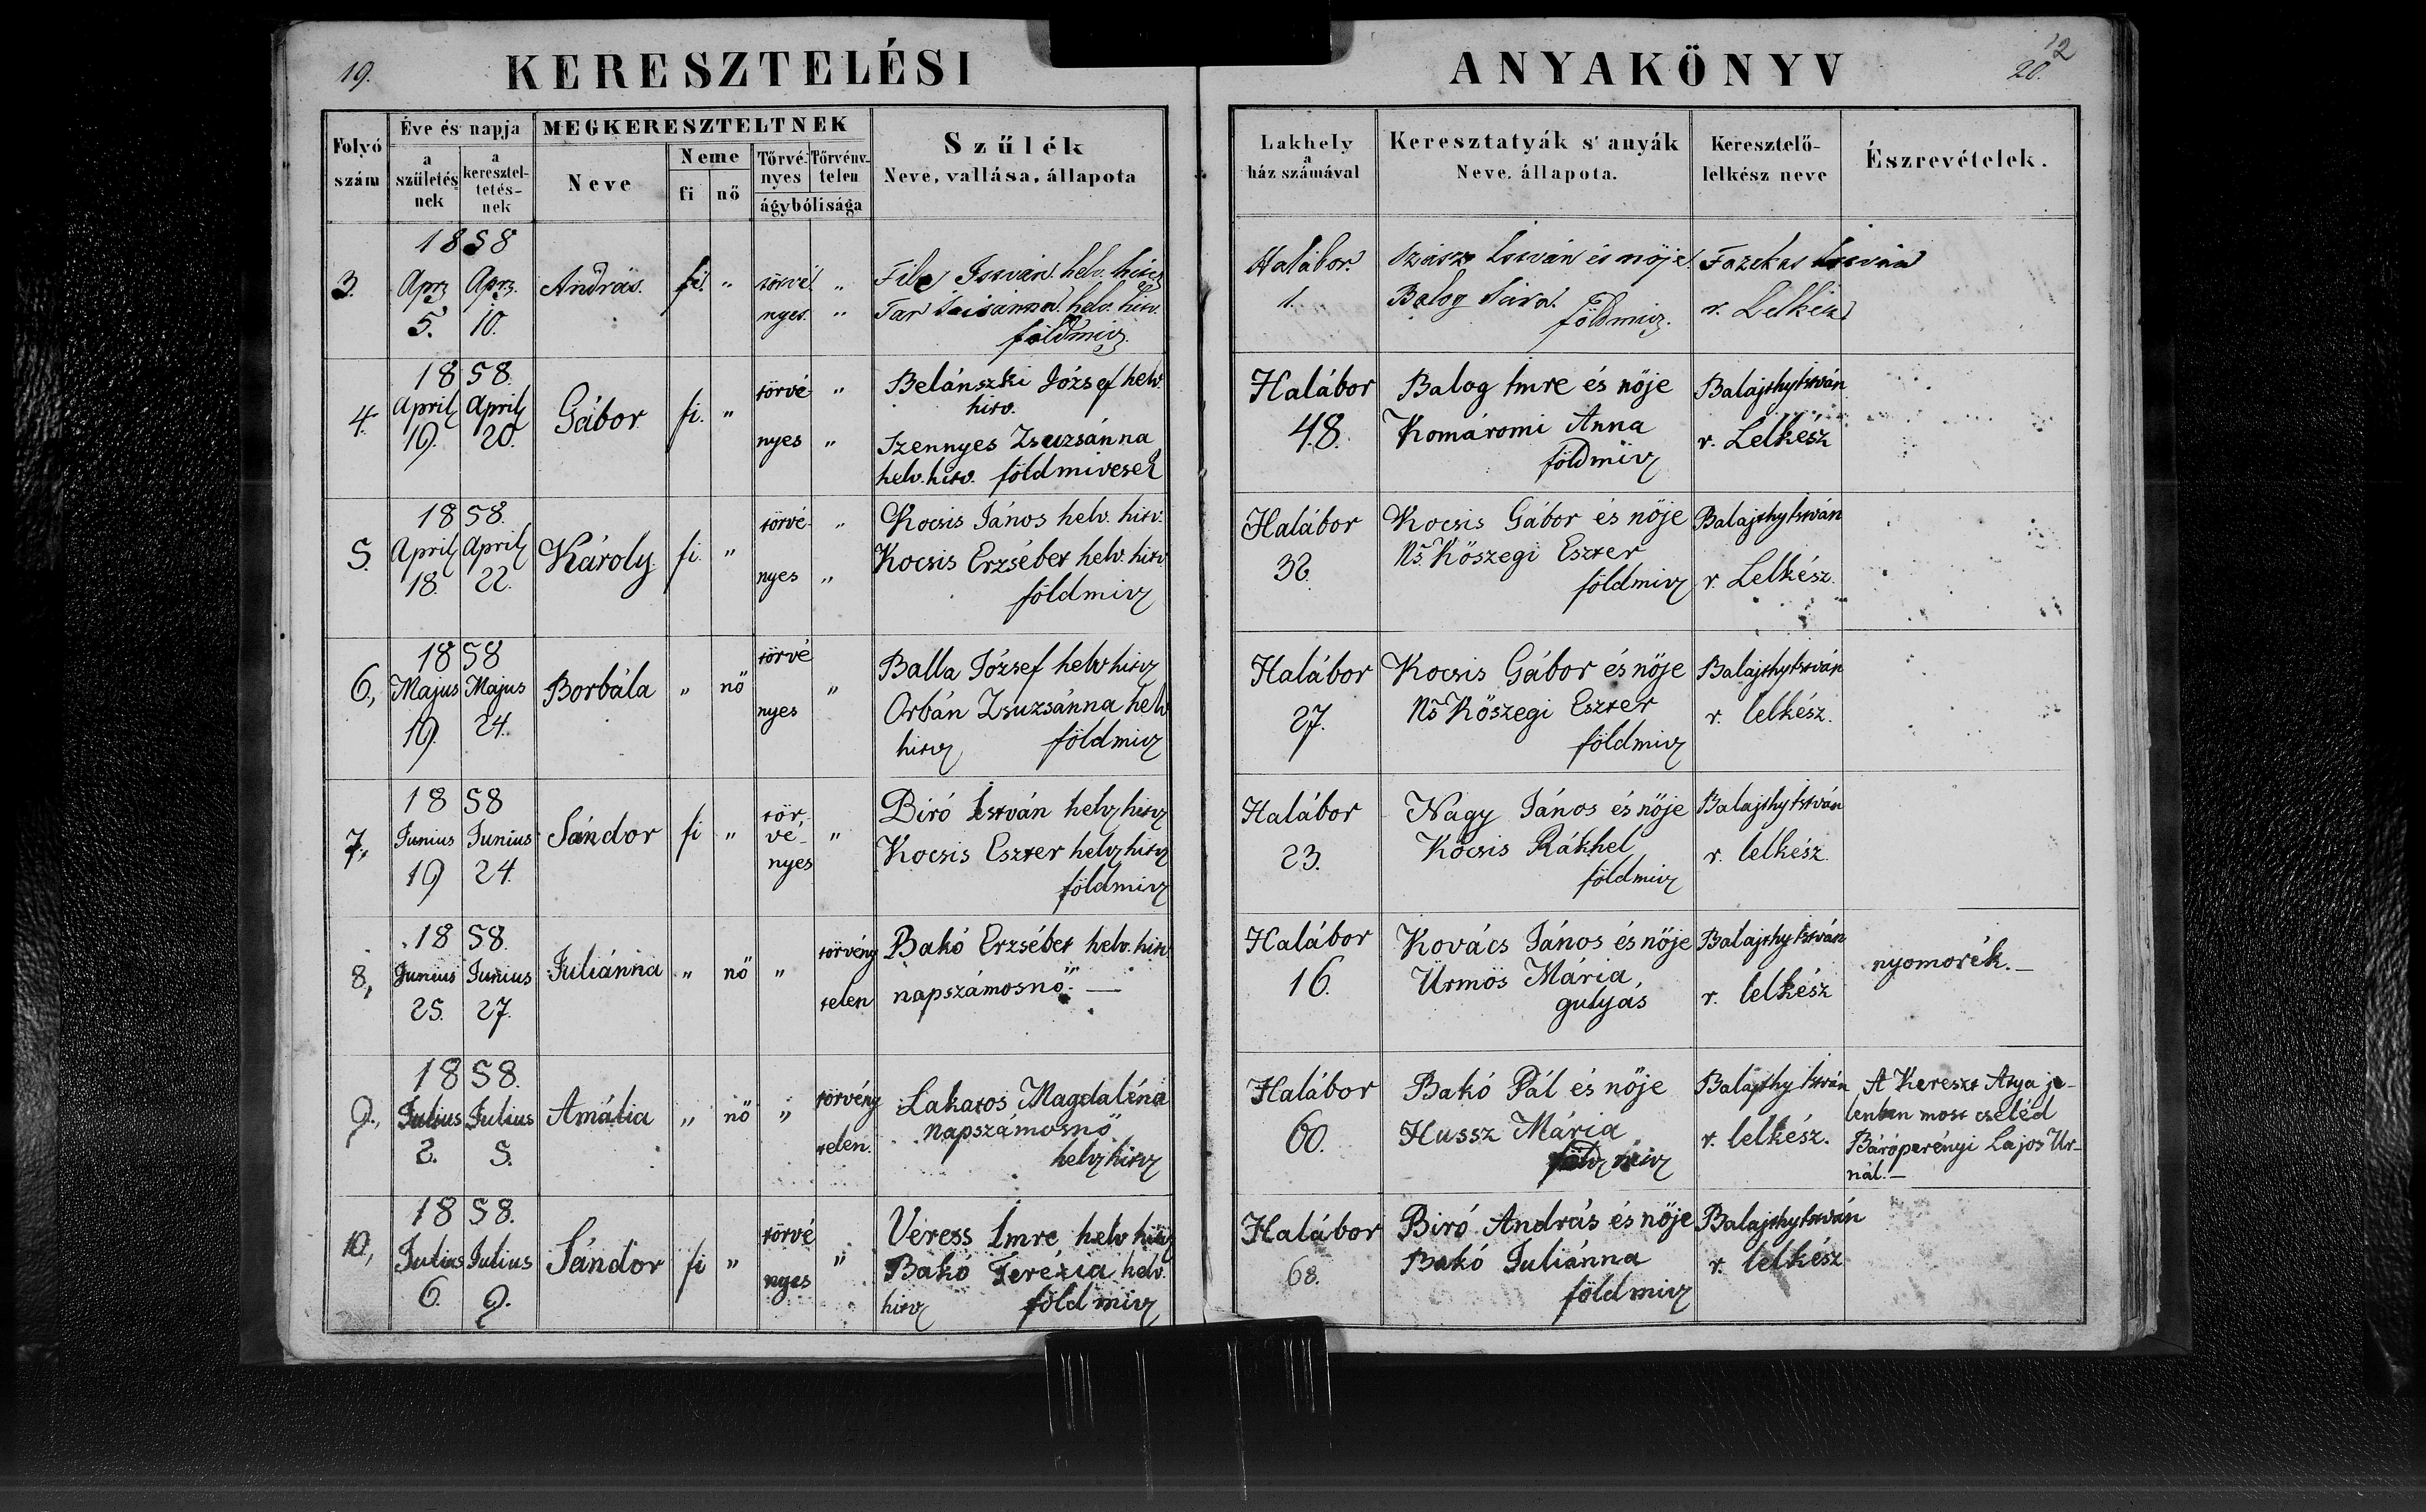 19.
KERESZTELÉSI
Folyó szám
Éve és napja
a születés nek
a keresztel- tetés- nek
MEGKERESZTELTNEK
Neve
Neme
fi
nő
Törvé- nyes
Törvény- telen
ágybólisága
Szűlék
Neve, vallása, állapota
ANYAKÖNYV
12
20.
Lakhely
a
ház számával
Keresztatyák s' anyák
Neve, állapota.
Keresztelő-
lelkész neve
Észrevételek.
1858
3. Apr. 5. Apr. 10. András. fi. " törvé nyes. " "
File István helv. hitv.
Tar Zsuzsánna helv. hitv.
földmiv.
Halábor. 1.
Szász István és nője
Balog Sára.
földmiv.
Fazekas István
r. Lelkész
1858.
4. April 19. April 20. Gábor fi. " törvé- nyes " "
Belánszki József helv.
hitv.
Szennyes Zsuzsánna
helv. hitv. földmivesek
Halábor 48.
Balog Imre és nője
Komáromi Anna
földmiv
Balajthy István
r. Lelkész
1858.
5. April 18. April 22. Károly. fi. " törvé- nyes " "
Kocsis János helv. hitv.
Kocsis Erzsébet helv. hitv
földmiv
Halábor 32.
Kocsis Gábor és nője
Ns. Kőszegi Eszter
földmiv
Balajthy István
r. Lelkész.
1858
6, Majus 19. Majus 24. Borbála " nő törvé nyes "
Balla József helv hitv
Orbán Zsuzsánna helv
hitv földmiv
Halábor 27.
Kocsis Gábor és nője
Ns Kőszegi Eszter
földmiv
Balajthy István
r. lelkész.
1858
7, Junius 19 Junius 24. Sándor fi " tör, vé- nyes "
Biró István helv hitv
Kocsis Eszter helv hitv
földmiv
Halábor 23.
Nagy János és nője
Kocsis Rákhel
földmiv
Balajthy István
r. lelkész.
1858.
8, Junius 25. Junius 27. Juliánna " nő " törvény telen
Bakó Erzsébet helv. hitv
napszámosnő. —
Halábor 16.
Kovács János és nője
Ürmös Mária,
gulyás
Balajthy István
r. lelkész
nyomorék. —
1858.
9., Julius 2. Julius 5. Amália " nő " törvény telen.
Lakatos Magdaléna
napszámosnő
helv hitv
Halábor 60.
Bakó Pál és nője
Hussz Mária
földmiv
Balajthy István
r. lelkész.
A Kereszt Atya je-
lenben most cseléd
Báró perényi Lajos Ur-
nál. —
1858.
10, Julius 6. Julius 9. Sándor fi " törvé nyes "
Veress Imre helv hitv
Bakó Terézia helv.
hitv földmiv
Halábor 68.
Biró András és nője
Bakó Juliánna
földmiv
Balajthy István
r. lelkész